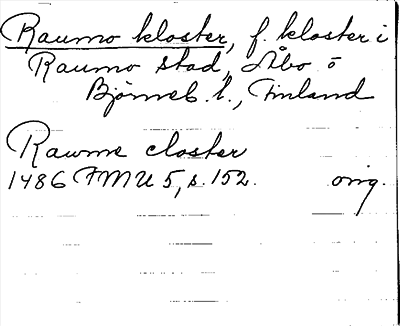 Raumo kloster, f. kloster i
Raumo stad, Åbo o
Björneb. l., Finland
Raume closter
1486 FMU 5, s. 152. orig.